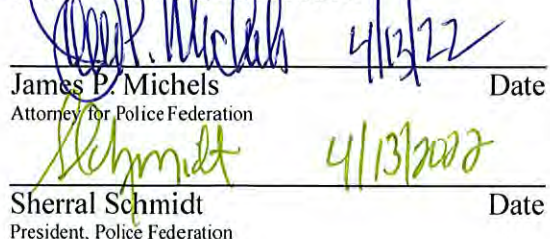 4/13/22
James P. Michels Date
Attorney for Police Federation
Schmidt 4/13/2022
Sherral Schmidt Date
President, Police Federation